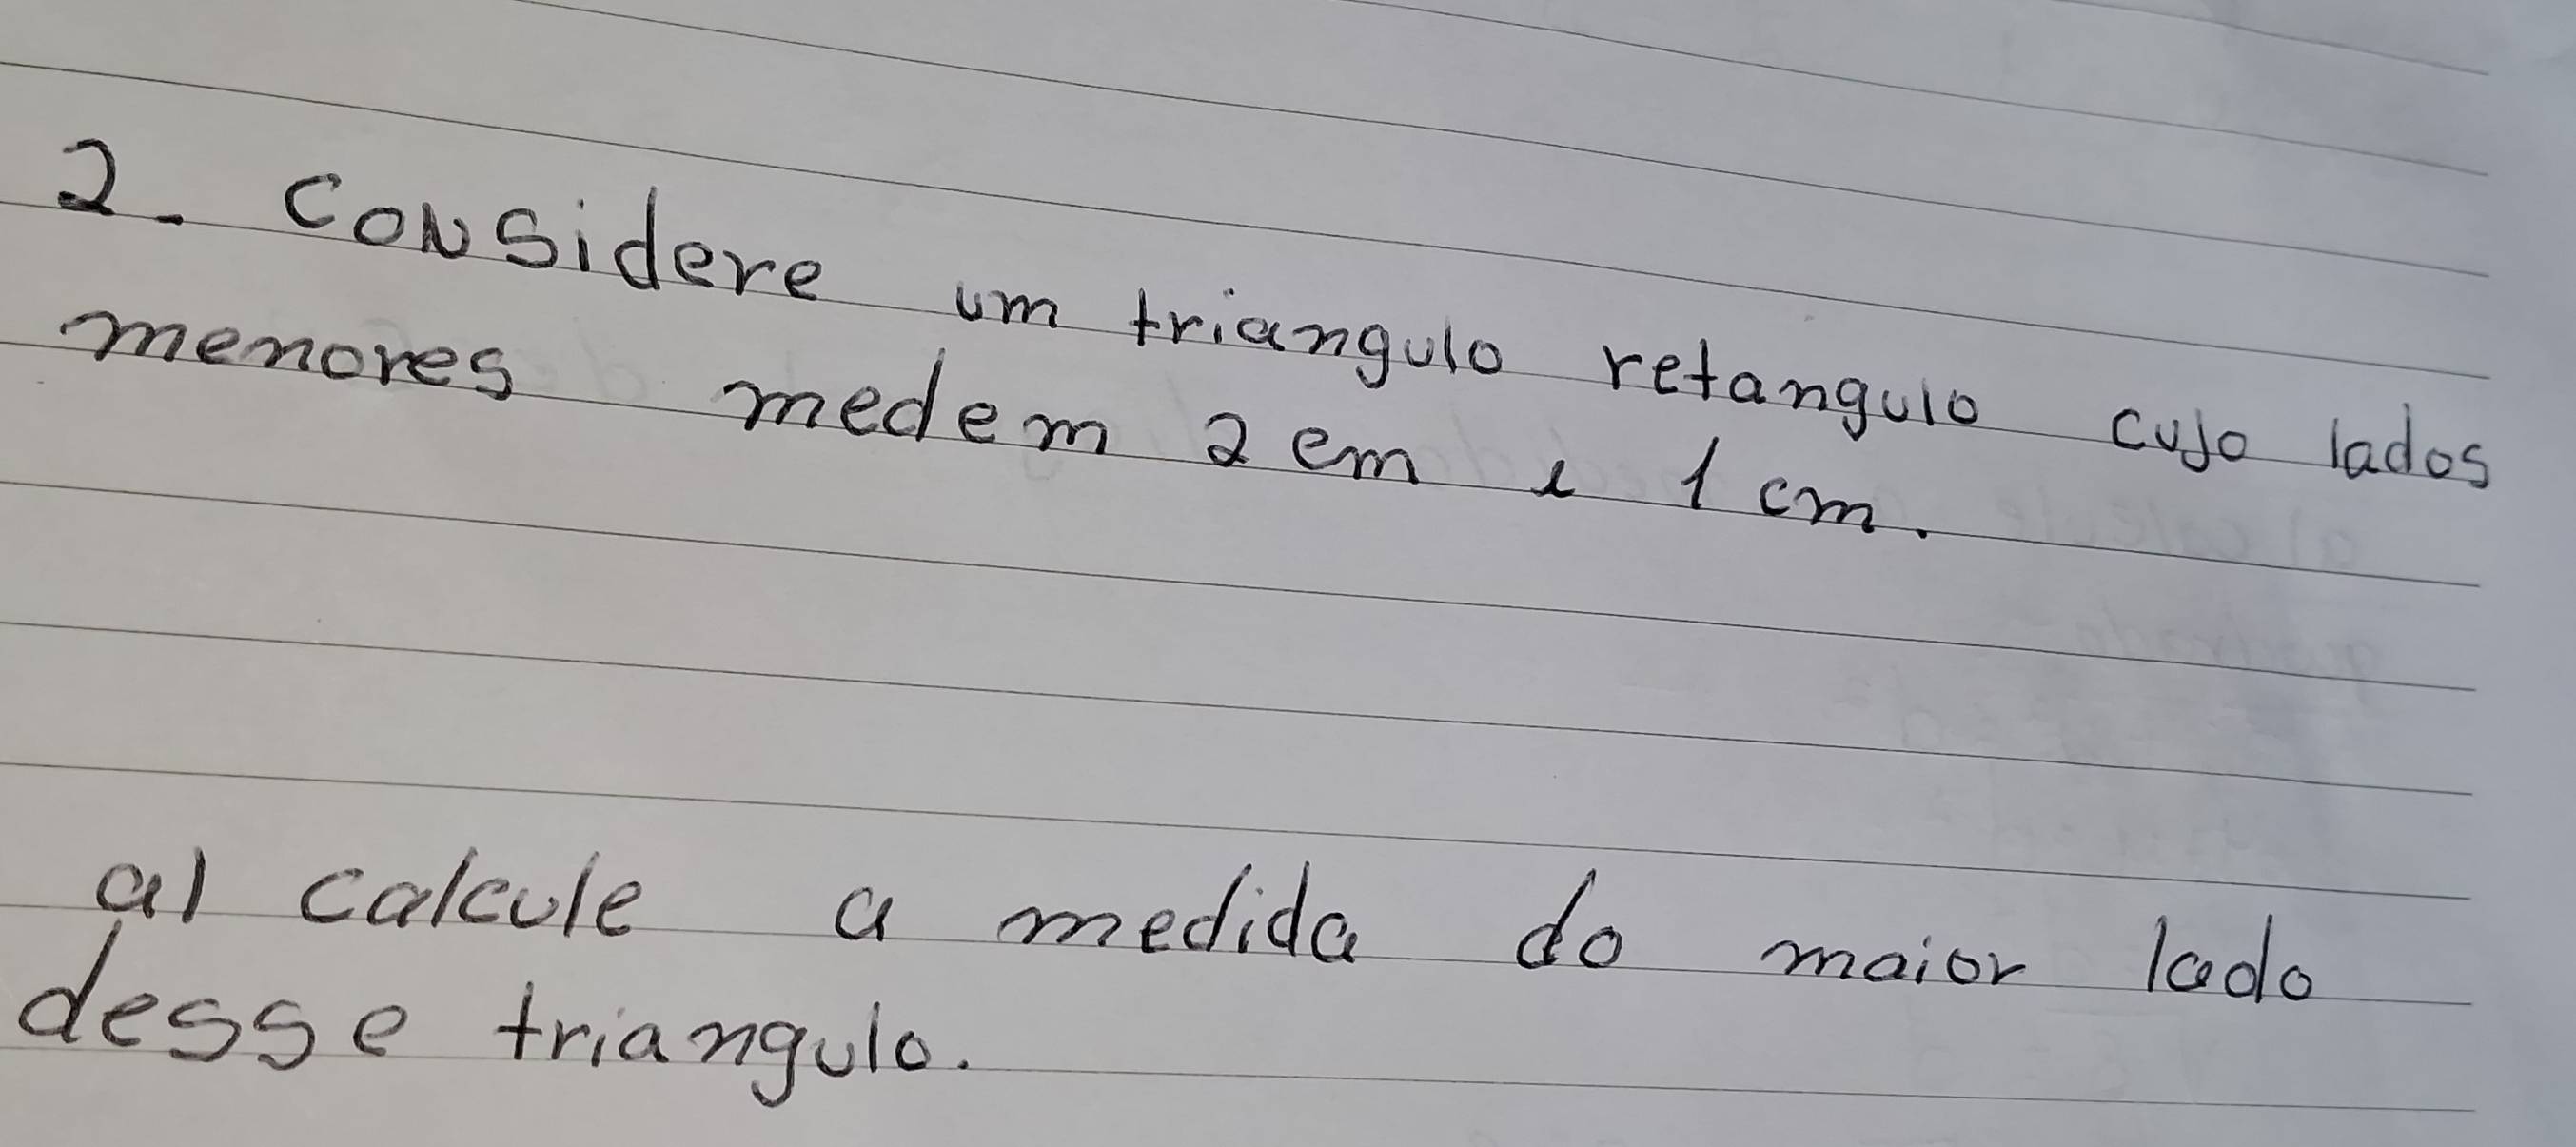 2- Considere um triangulo retangulo cujo lados
menores medem 2 em e 1 cm.
a) calcule a medida do maior lado
desse triangulo.